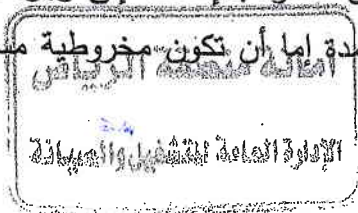 دة إما أن تكون مخروطية مـ
أمانة منطقة الرياض
الإدارة العامة للتشغيل والصيانة